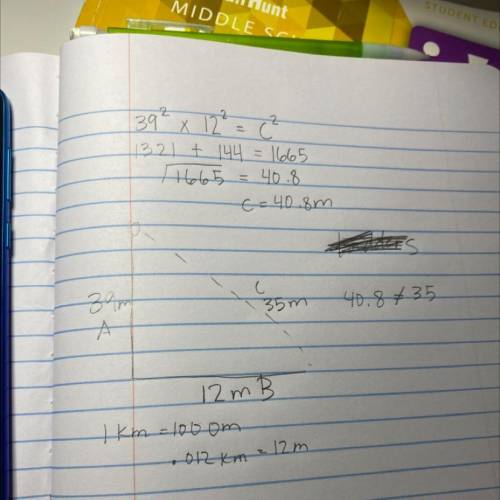 Hunt
MIDDLE SC
STUDENT ED
39² x 12² = c²
1321 + 144 = 1665
√1665 = 40.8
c = 40.8m
39m
A
C
35m
40.8 ≠ 35
12m B
1 km = 1000m
.012 km = 12m